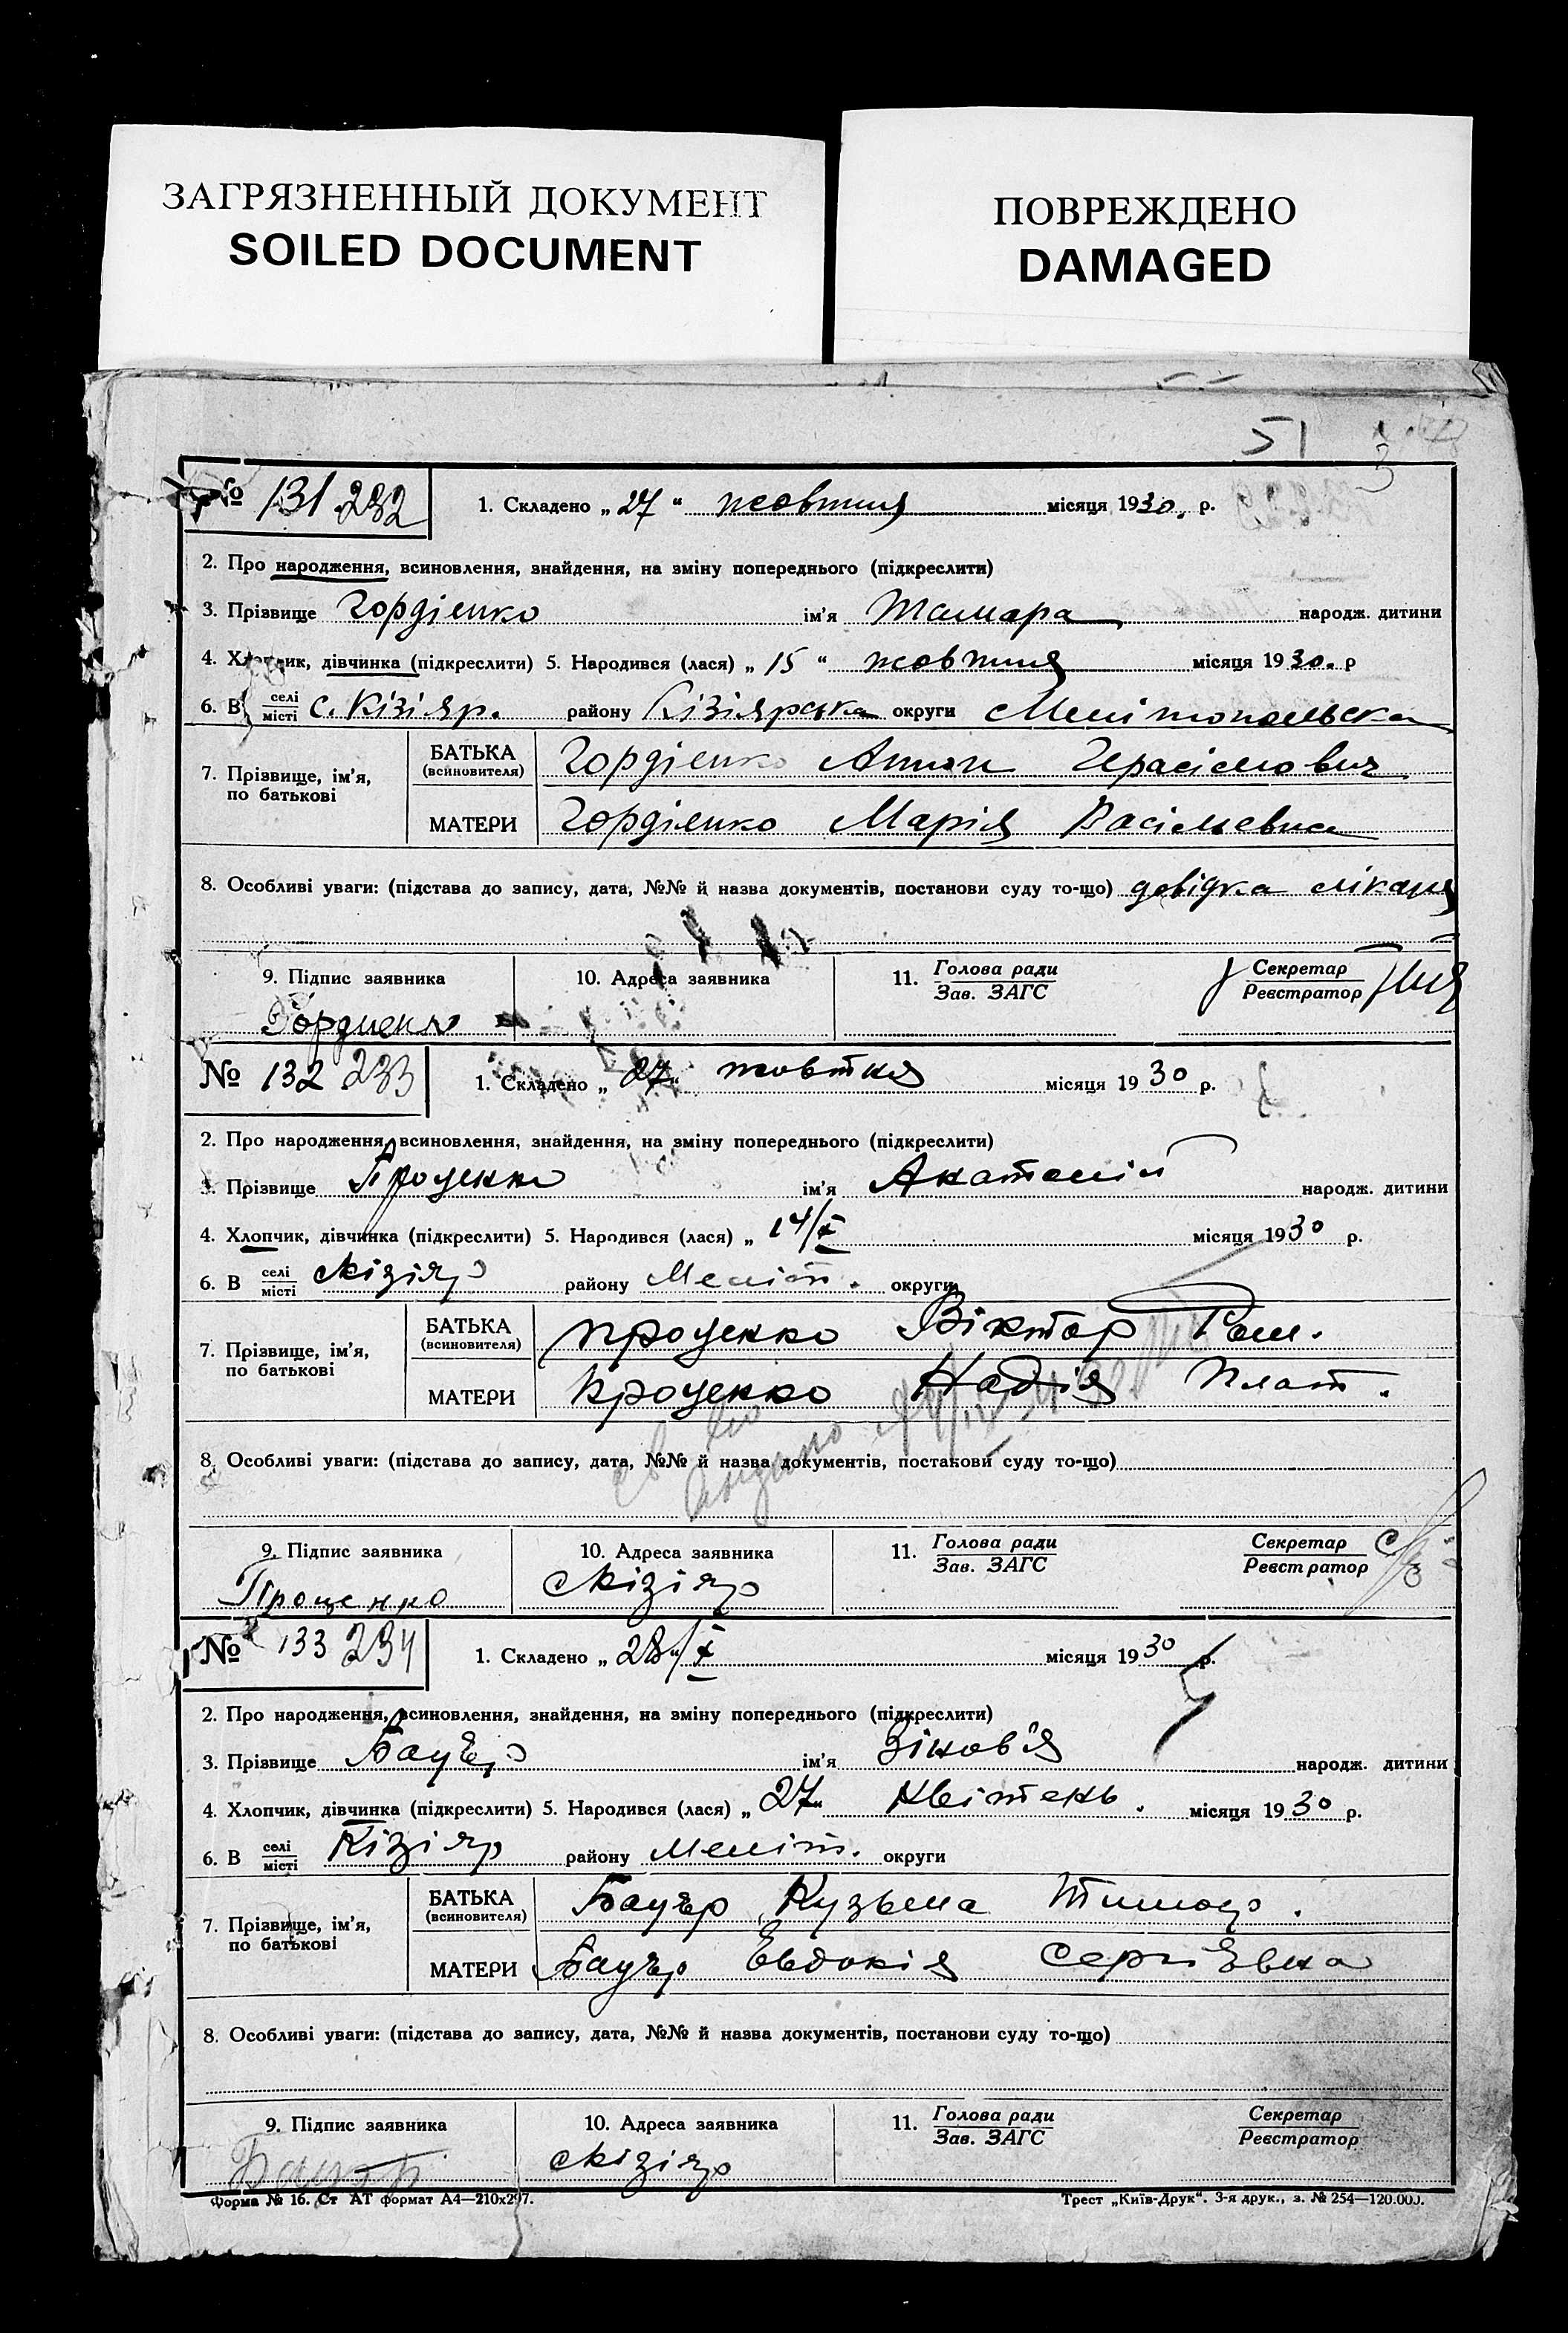 ЗАГРЯЗНЕННЫЙ ДОКУМЕНТ
SOILED DOCUMENT
ПОВРЕЖДЕНО
DAMAGED
51
3
№ 131 232 1. Складено „ 27 “ жовтня місяця 1930. р.
2. Про народження, всиновлення, знайдення, на зміну попереднього (підкреслити)
3. Прізвище Гордіенко ім’я Тамара народж. дитини
4. Хлопчик, дівчинка (підкреслити) 5. Народився (лася) „ 15 “ жовтня місяця 1930. р
6. В селі місті с. Кізіяр. району Кізіярська округи Мелітопольська
7. Прізвище, ім’я, по батькові
БАТЬКА (всиновителя) Гордіенко Антон Герасімович
МАТЕРИ Гордіенко Марія Васільевна
8. Особливі уваги: (підстава до запису, дата, №№ й назва документів, постанови суду то-що) довідка лікаря
9. Підпис заявника 10. Адреса заявника 11. Голова ради Зав. ЗАГС Секретар Реєстратор
Гордиенко
№ 132 233 1. Складено „ 27 “ жовтня місяця 1930 р.
2. Про народження, всиновлення, знайдення, на зміну попереднього (підкреслити)
3. Прізвище Проценко ім’я Анатолій народж. дитини
4. Хлопчик, дівчинка (підкреслити) 5. Народився (лася) „ 14/X місяця 1930 р.
6. В селі місті Кізіяр району Меліт. округи
7. Прізвище, ім’я, по батькові
БАТЬКА (всиновителя) Проценко Віктор Ром.
МАТЕРИ Проценко Надія Плат.
8. Особливі уваги: (підстава до запису, дата, №№ й назва документів, постанови суду то-що)
9. Підпис заявника 10. Адреса заявника 11. Голова ради Зав. ЗАГС Секретар Реєстратор
Проценко Кізіяр
№ 133 234 1. Складено „ 28 “/X місяця 1930 р.
2. Про народження, всиновлення, знайдення, на зміну попереднього (підкреслити)
3. Прізвище Бауер ім’я Зіновія народж. дитини
4. Хлопчик, дівчинка (підкреслити) 5. Народився (лася) „ 27 “ Квітень. місяця 1930 р.
6. В селі місті Кізіяр району Меліт. округи
7. Прізвище, ім’я, по батькові
БАТЬКА (всиновителя) Бауер Кузьма Тимоф.
МАТЕРИ Бауер Евдокія Сергієвна
8. Особливі уваги: (підстава до запису, дата, №№ й назва документів, постанови суду то-що)
9. Підпис заявника 10. Адреса заявника 11. Голова ради Зав. ЗАГС Секретар Реєстратор
Бауэр Кізіяр
Форма № 16. Ст АТ формат А4—210x297. Трест „Київ-Друк“. 3-я друк., з. № 254—120.000.